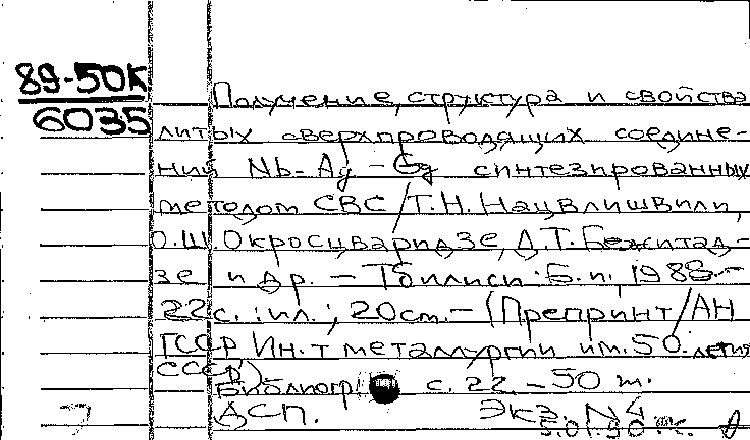 89-50К
6035
Получение, структура и свойства
литых сверхпроводящих соедине-
ний Nb-Ag-
синтезированных
методом СВС/Т.Н. Нацвлишвили,
О.Ш. Окросцваридзе, Д.Т. Бежитад-
зе и др. - Тбилиси: Б.и., 1988.-
22с.: ил.; 20см.-(Препринт/АН
ГССР Ин-т металлургии им. 50-летия
СССР)
Библиогр. с. 22. - 50 т.
ДСП. Экз. N4
5.01.90